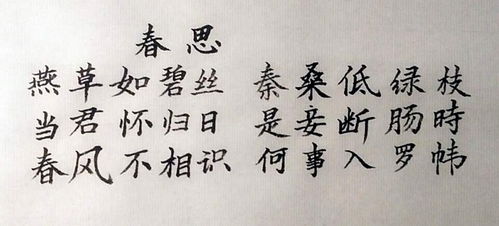 春思
燕草如碧丝 秦桑低绿枝
当君怀归日 是妾断肠時
春风不相识 何事入罗帏